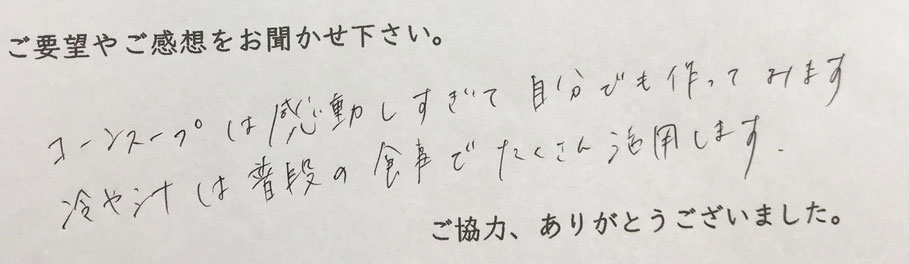 ご要望やご感想をお聞かせ下さい。
コーンスープは感動しすぎて自分でも作ってみます
冷や汁は普段の食事でたくさん活用します.
ご協力、ありがとうございました。